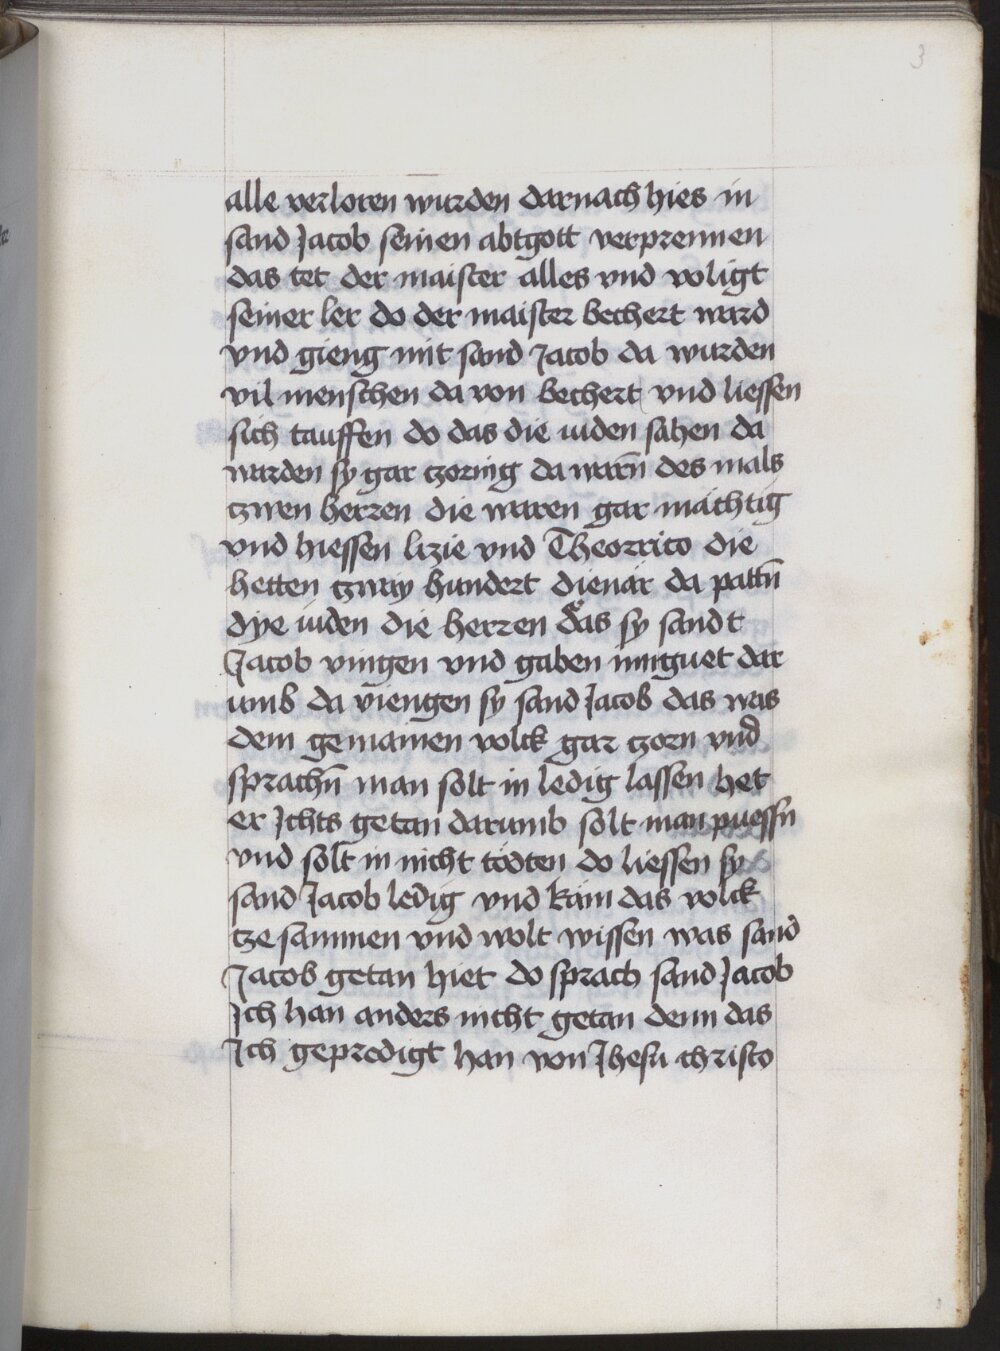 3
alle verloren wurden darnach hies in
sand Jacob seinen abtgott verprennen
das tet der maister alles vnd voligt
seiner ler do der maister bechert ward
vnd gieng mit sand Jacob da wurden
vil menschen da von bechert vnd liessen
sich tauffen do das die iuden sahen da
warden sy gar tzornig da warn̄ des mals
tzwen herren die waren gar mächtig
vnd hiessen lizie vnd Theorrito die
hetten tzway hundert dienär da pattn̄
dye iuden die herren das sy sandt
Jacob vingen vnd gaben in guet dar
umb da viengen sy sand Jacob das was
dem gemainen volck gar tzorn vnd
sprachn̄ man solt in ledig lassen het
er Ichts getan darumb solt man puessn
vnd solt in nicht tödten do liessen sy
sand Jacob ledig vnd käm das volck
tze sammen vnd wolt wissen was sand
Jacob getan hiet do sprach sand Jacob
Ich han anders nicht getan denn das
Ich gepredigt han von Jhesu christo